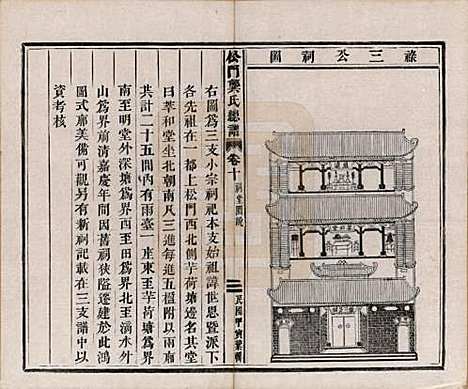 祿三公祠圖
松門龔氏總譜
卷十
祠堂圖說
右圖爲三支小宗祠祀本支始祖諱世恩暨派下
各先祖在一都上松門西北側芋荷塘名其堂
曰萃和堂坐北朝南凡三進每進五楹附以兩廊
共計二十五間內有雨臺一座東至芋荷塘爲界
南至明堂外深塘爲界西至田爲界北至滴水外
山爲界前清嘉慶年間因舊祠狹隘遷建於此鴻
圖式廓美備可觀另有新祠記載在三支譜中以
資考核